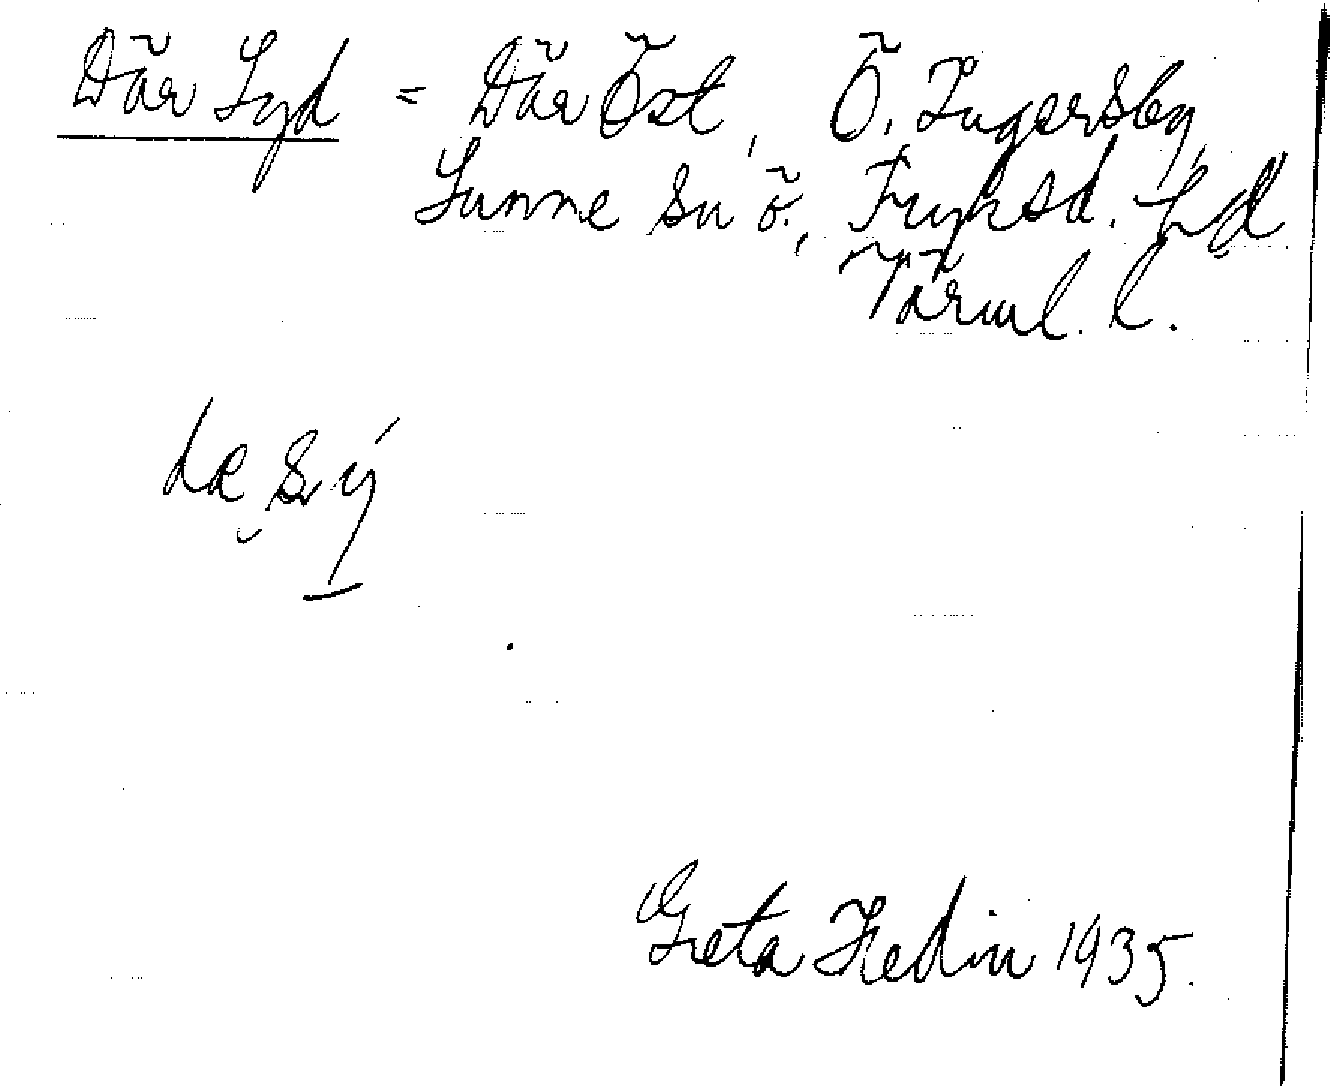 Där Syd = Där Öst, Ö. Ingersby,
Sunne sn ö., Fryksd. hd
Värml. l.
dæ sý
Greta Hedin 1935.